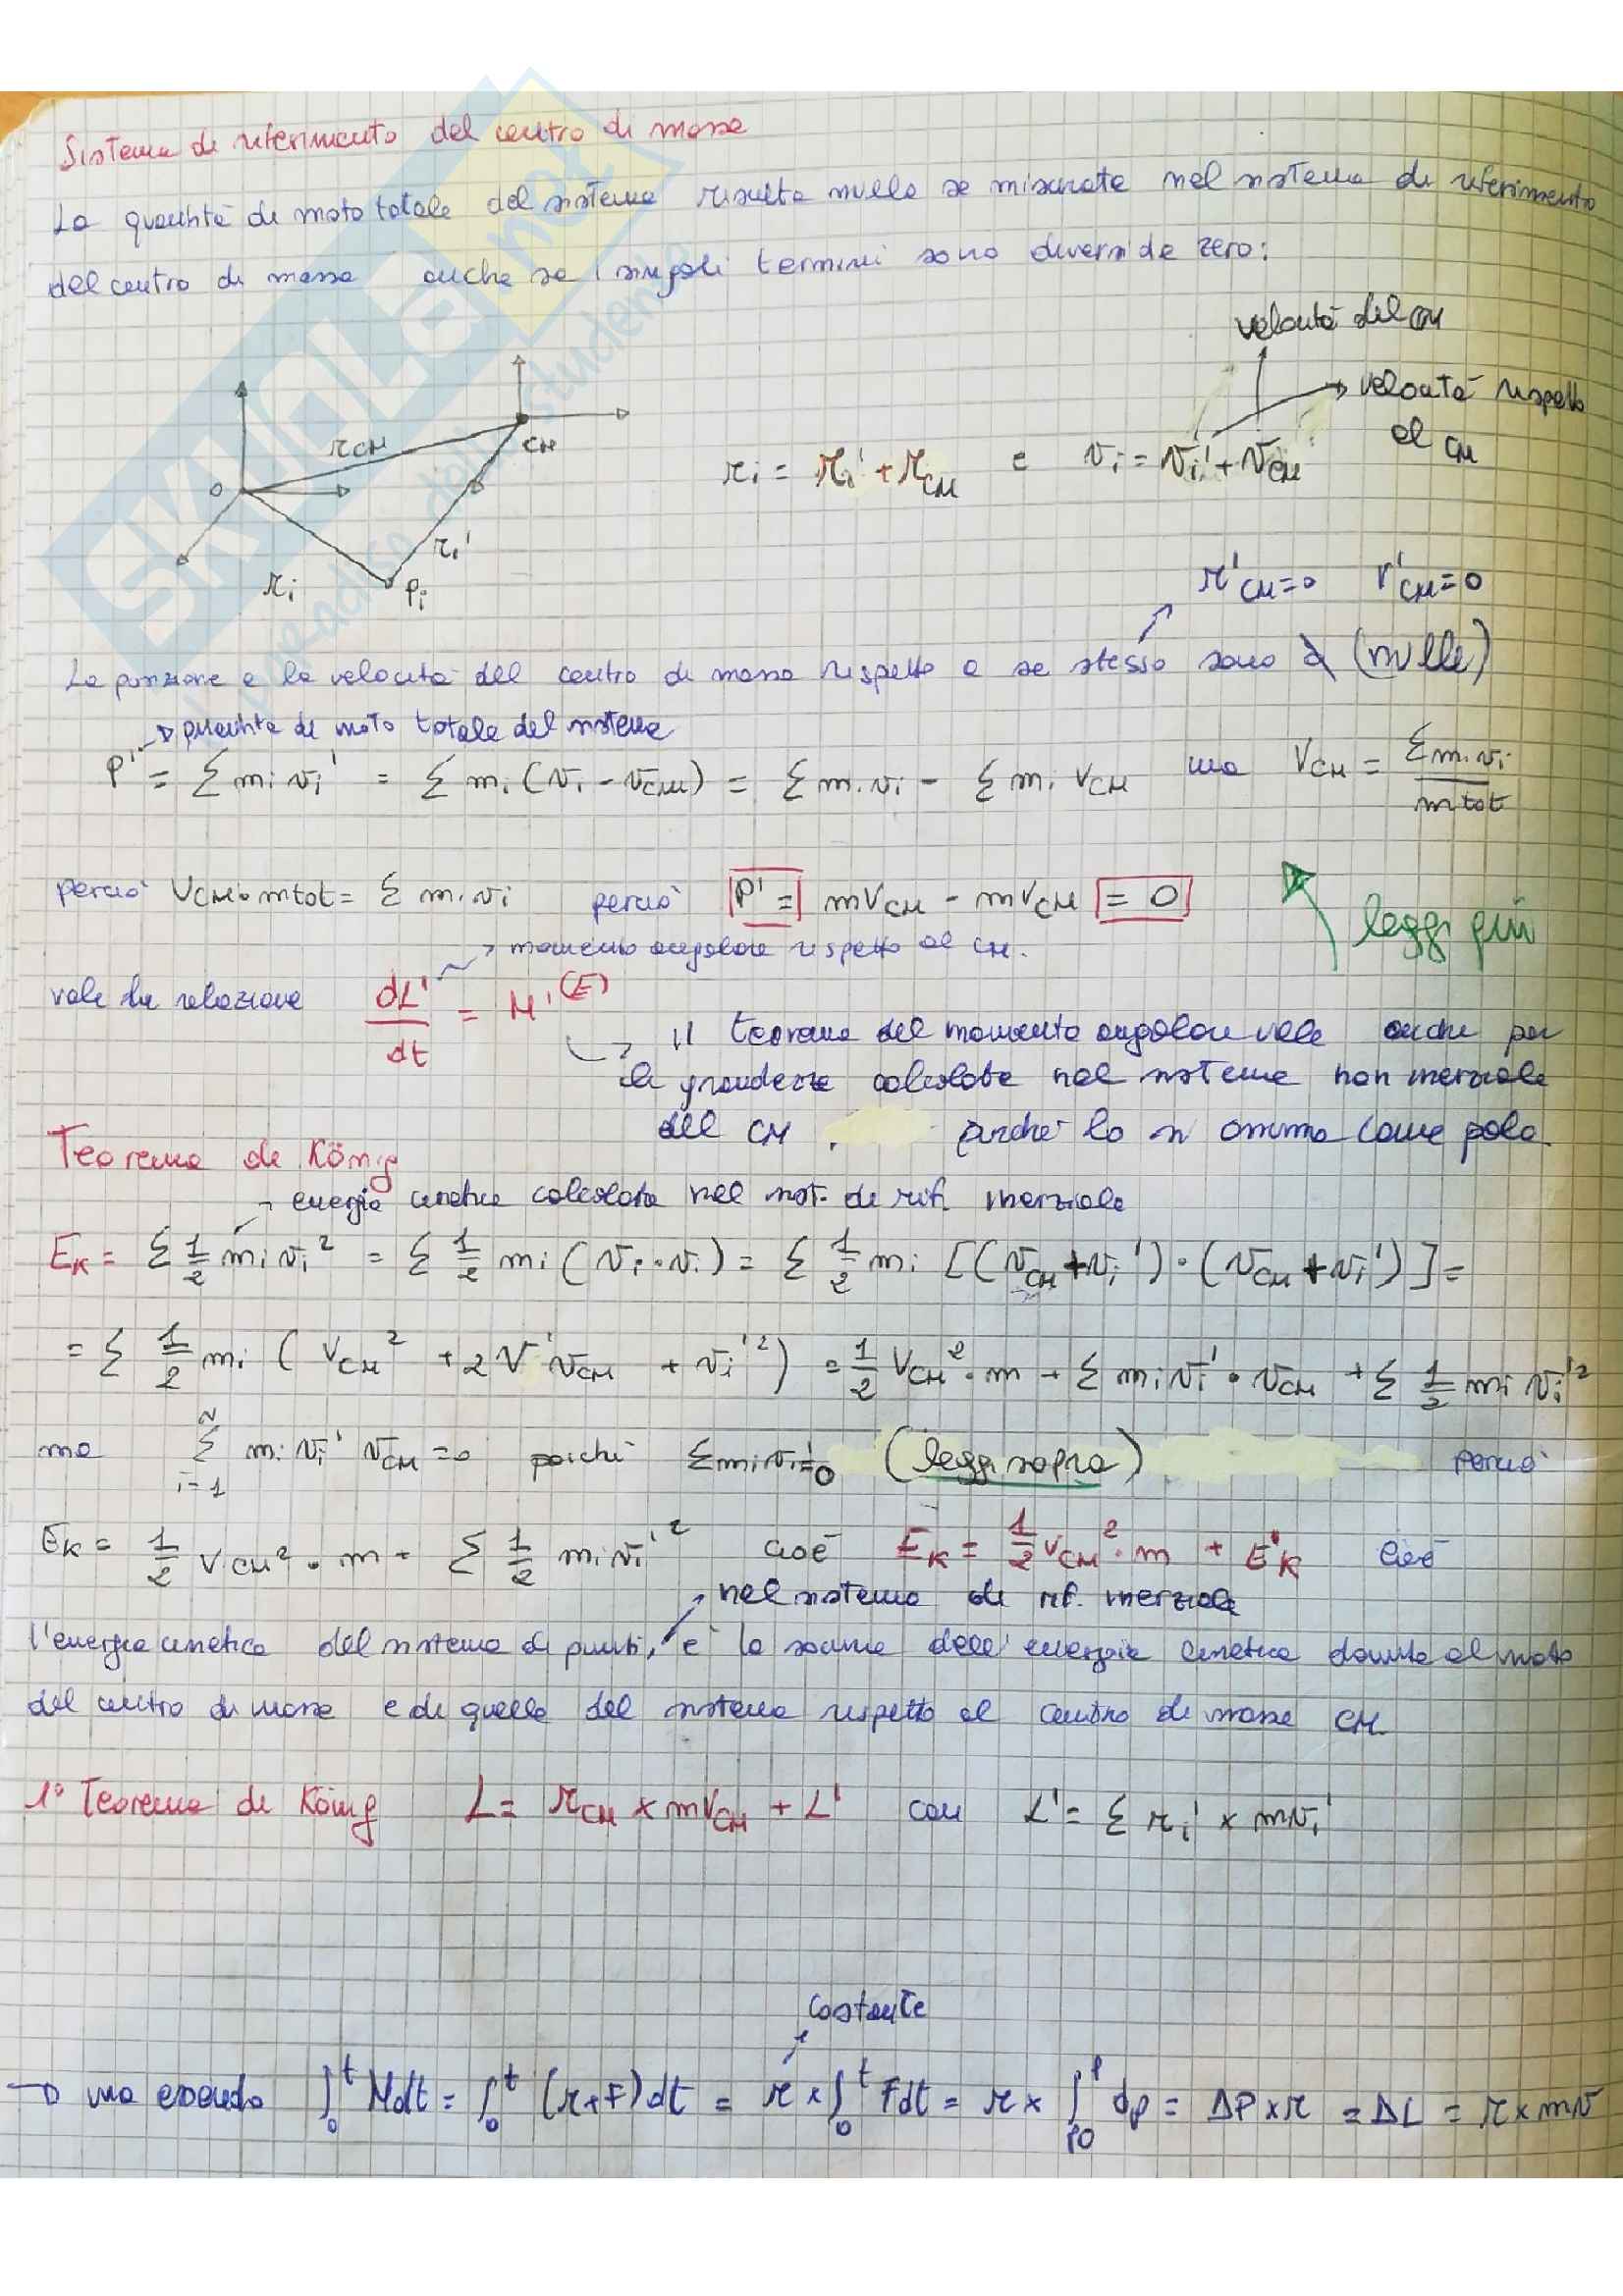 Sistema di riferimento del centro di massa
La quantità di moto totale del sistema risulta nulla se misurata nel sistema di riferimento
del centro di massa anche se i singoli termini sono diversi da zero:
velocità del CM
velocità rispetto
al CM
r_CM
CM
O
r_i'
r_i
P_i
r_i = r_i' + r_CM e v_i = v_i' + v_CM
r'_CM = 0 v'_CM = 0
La posizione e la velocità del centro di massa rispetto a se stesso sono (nulle)
quantità di moto totale del sistema
P' = Σ m_i v_i' = Σ m_i (v_i - v_CM) = Σ m_i v_i - Σ m_i v_CM ma v_CM = Σ m_i v_i / m tot
perciò v_CM · m tot = Σ m_i v_i perciò P' = m v_CM - m v_CM = 0
leggi giù
momento angolare rispetto al CM.
vale la relazione dL'/dt = M'^(E)
Il teorema del momento angolare vale anche per
le grandezze calcolate nel sistema non inerziale
del CM, purché lo si assuma come polo.
Teorema di König
energia cinetica calcolata nel sist. di rif. inerziale
E_K = Σ 1/2 m_i v_i² = Σ 1/2 m_i (v_i · v_i) = Σ 1/2 m_i [(v_CM + v_i') · (v_CM + v_i')] =
= Σ 1/2 m_i (v_CM² + 2 v' v_CM + v_i'²) = 1/2 v_CM² · m + Σ m_i v_i' · v_CM + Σ 1/2 m_i v_i'²
ma Σ_{i=1}^{N} m_i v_i' v_CM = 0 poiché Σ m_i v_i' = 0 (leggi sopra) perciò
E_K = 1/2 v_CM² · m + Σ 1/2 m_i v_i'² cioè E_K = 1/2 v_CM² · m + E'_K cioè
nel sistema di rif. inerziale
l'energia cinetica del sistema di punti, è la somma dell'energia cinetica dovuta al moto
del centro di massa e di quella del sistema rispetto al centro di massa CM.
1° Teorema di König L = r_CM × m v_CM + L' con L' = Σ r_i' × m v_i'
costante
→ ma essendo ∫_0^t M dt = ∫_0^t (r × F) dt = r × ∫_0^t F dt = r × ∫_{p0}^{p} dp = ΔP × r = ΔL = r × m v
SKUOLA.net